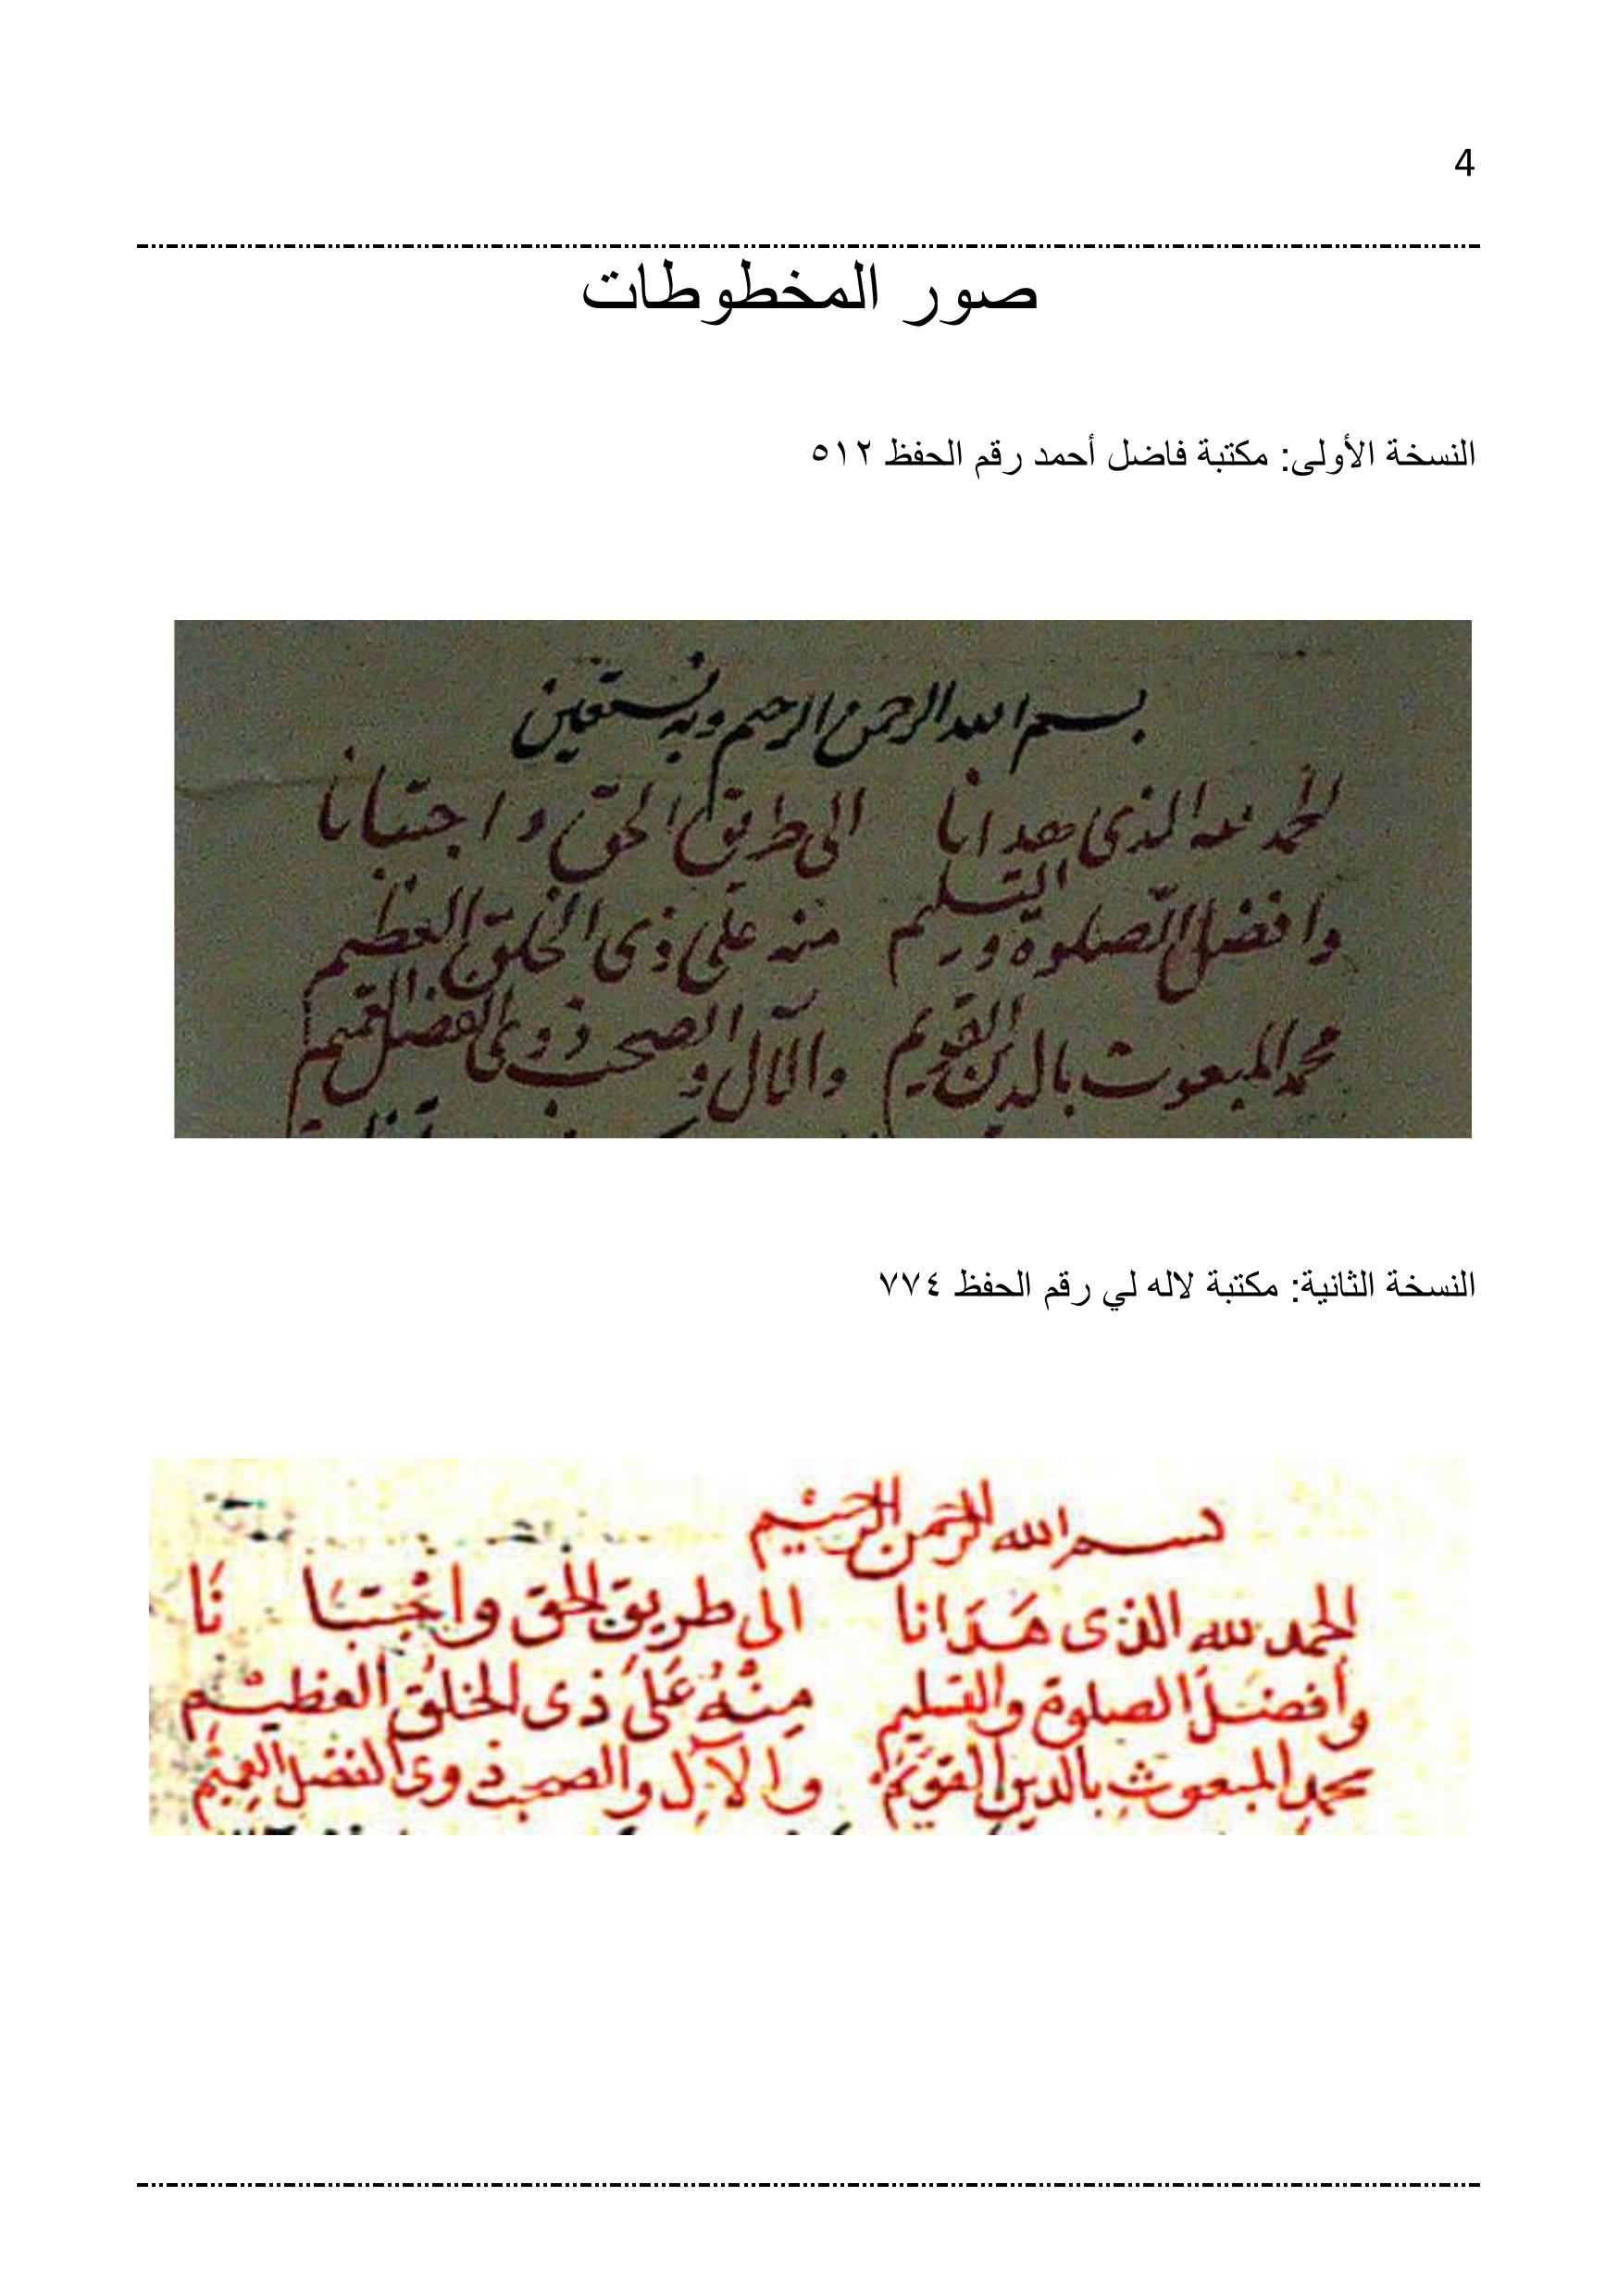 4
صور المخطوطات
النسخة الأولى: مكتبة فاضل أحمد رقم الحفظ ٥١٢
بسم الله الرحمن الرحيم وبه نستعين
الحمد لله الذى هدانا الى طريق الحق واجتبانا
وافضل الصلوة والتسليم منه على ذى الخلق العظيم
محمد المبعوث بالدين القويم والآل والصحب ذوى الفضل العميم
النسخة الثانية: مكتبة لاله لي رقم الحفظ ٧٧٤
بسم الله الرحمن الرحيم
الحمد لله الذى هَدَانا الى طريق الحق واجْتَبَا نَا
وأفضَلَ الصلوة والتسليم مِنْهُ عَلَى ذى الخلُق العظيْم
محمد المبعوث بالدين القويم والآل والصحب ذوى الفضل العميم